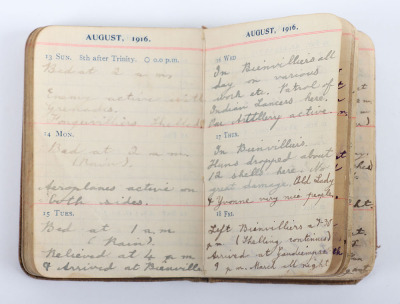 AUGUST, 1916.
13 SUN. 8th after Trinity. O 0.0 p.m.
Bed at 2 a.m.
Enemy active with
grenades.
Fonquevillers Shelled
14 MON.
Bed at 2 a.m
(Rain).
Aeroplanes active on
both sides.
15 TUES.
Bed at 1 a m
(Rain).
Relieved at 4 p m
& Arrived at Bienville
AUGUST, 1916.
16 WED
In Bienvilliers all
day on various
work etc. Patrol of
Indian Lancers here.
Our Artillery active.
17 THUR.
In Bienvilliers
Huns dropped about
12 shells here. No
great damage. Old Lady
& Yvonne very nice people.
18 FRI.
Left Bienvilliers
p m. (Shelling continued)
Arrived at
9 p.m. March all right